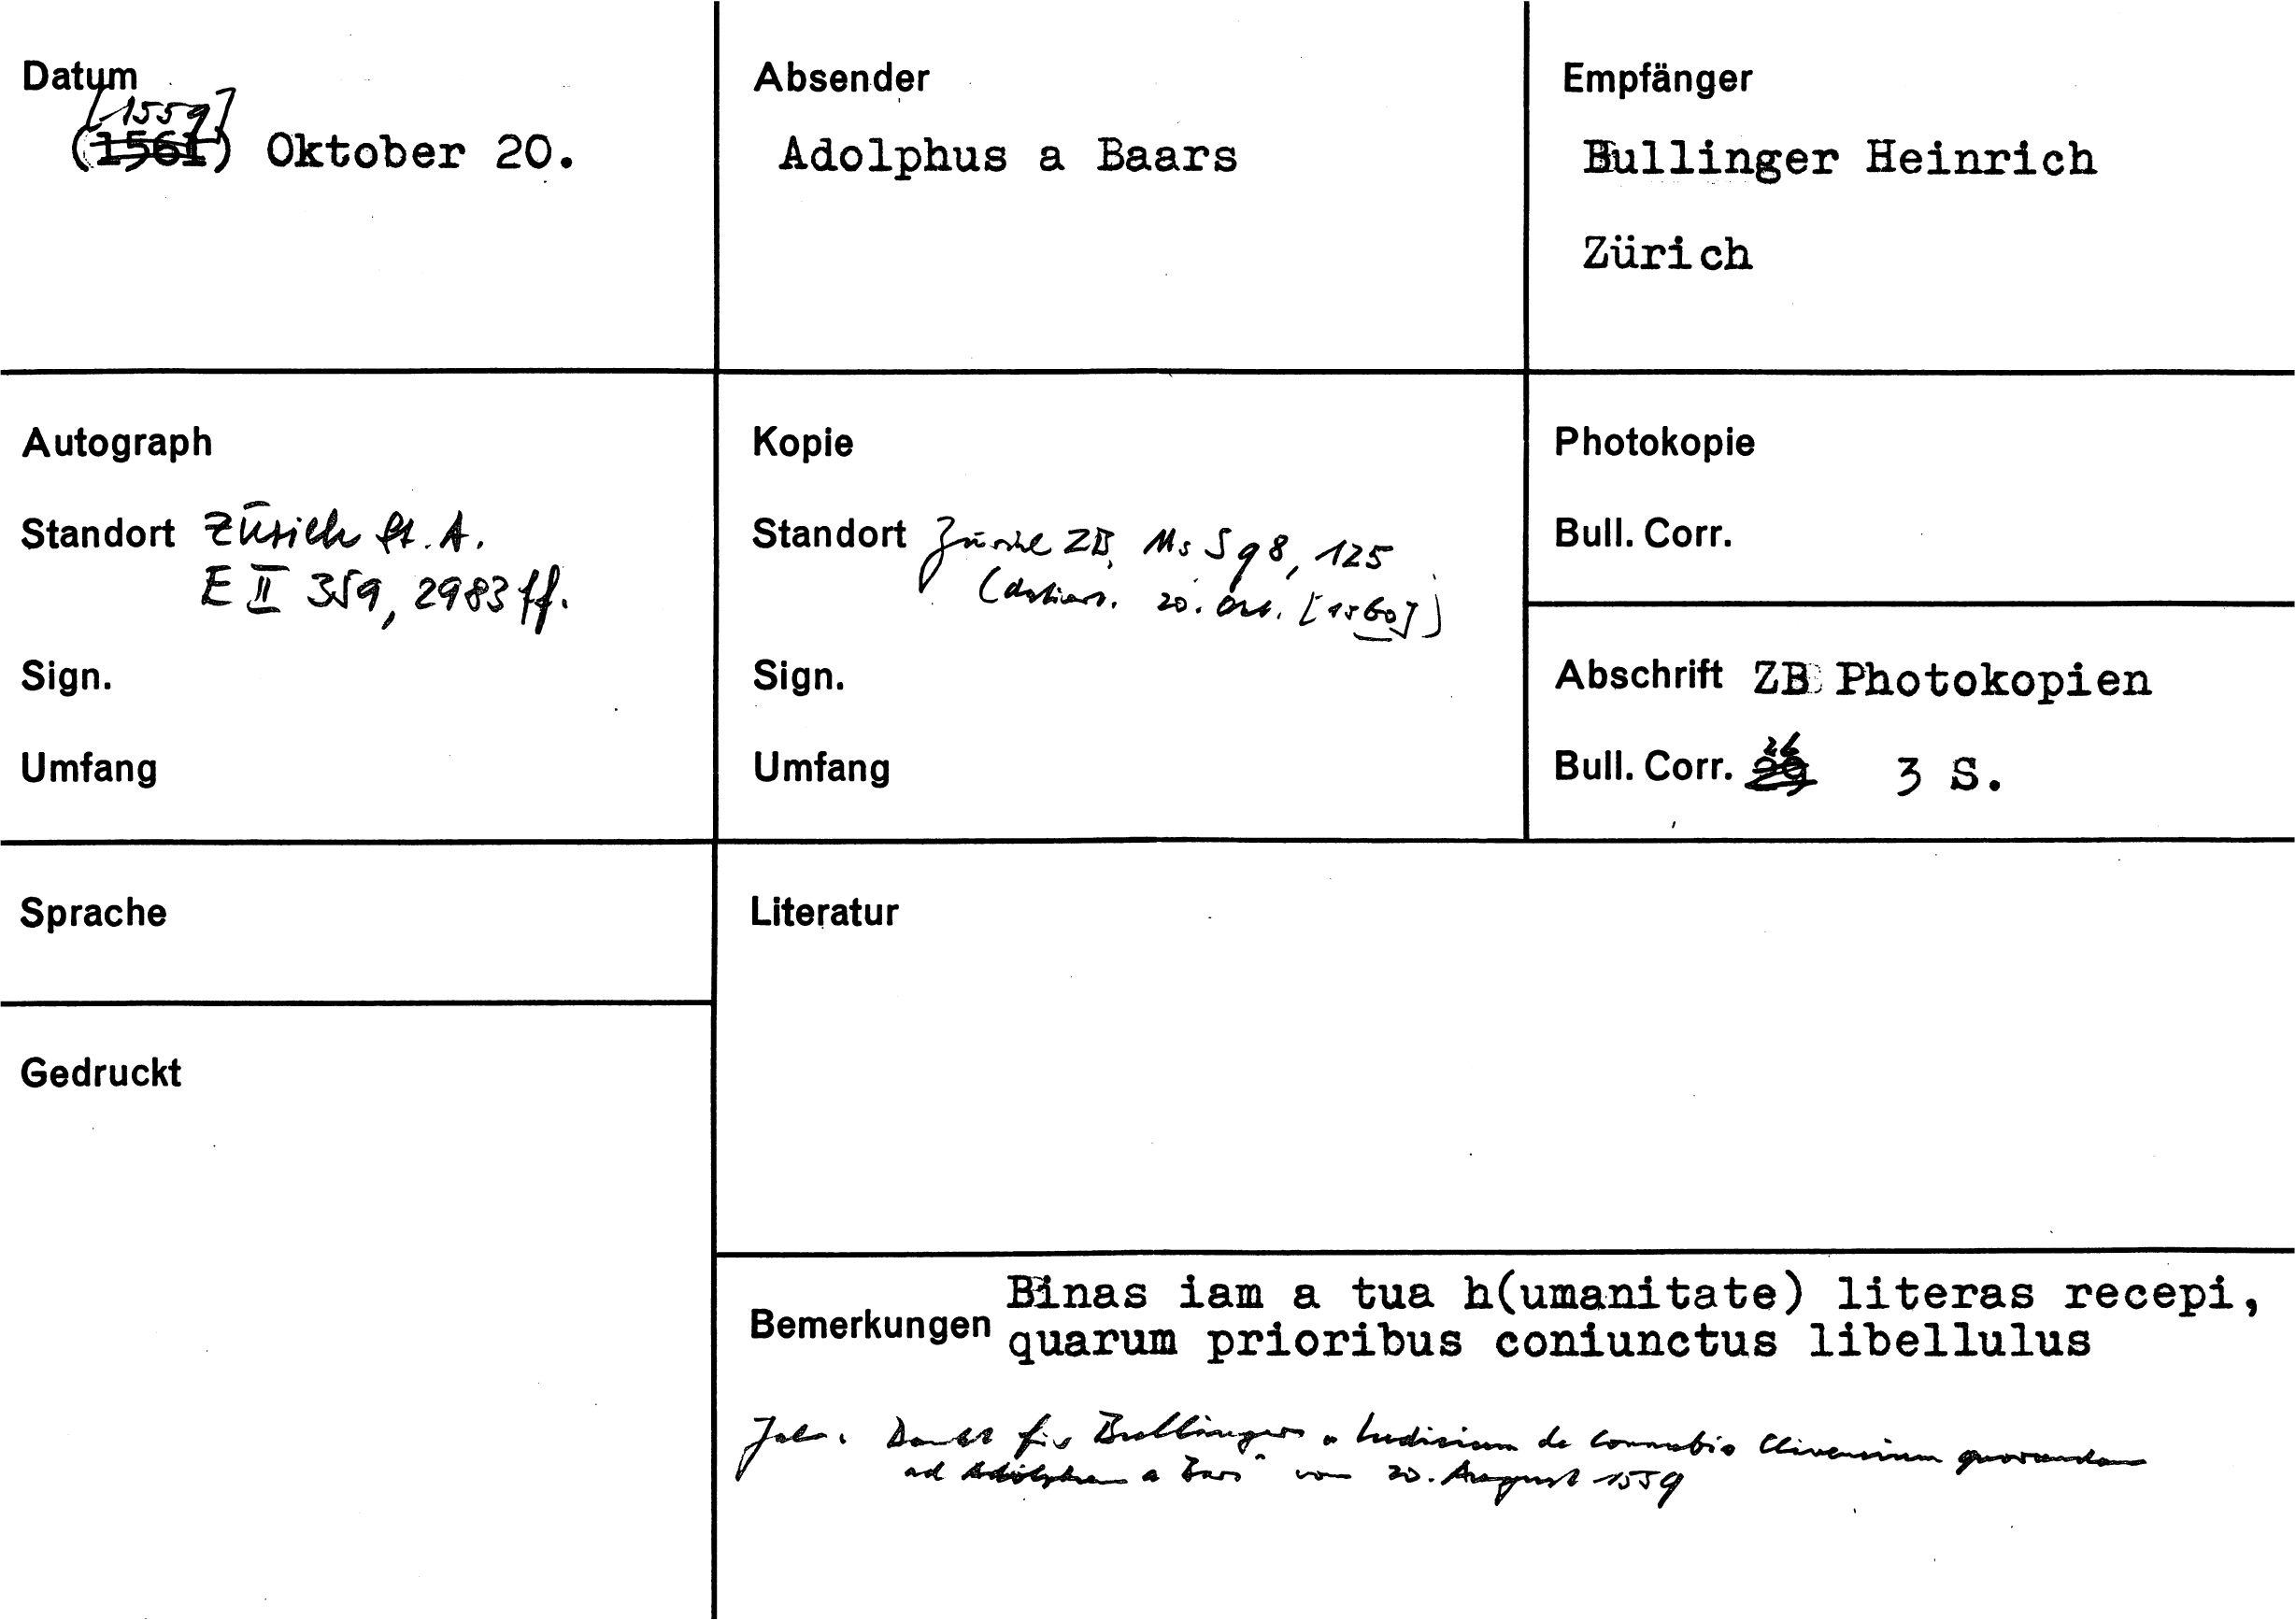 Datum
[1559]
(1561) Oktober 20.
Absender
Adolphus a Baars
Empfänger
Bullinger Heinrich
Zürich
Autograph
Standort Zürich St. A.
E II 359, 2983 ff.
Sign.
Umfang
Kopie
Standort Zürich ZB, Ms S 98, 125
(datiert. 20. Okt. [1560])
Sign.
Umfang
Photokopie
Bull. Corr.
Abschrift ZB Photokopien
26
Bull. Corr. 29 3 S.
Sprache
Gedruckt
Literatur
Bemerkungen
Binas iam a tua h(umanitate) literas recepi,
quarum prioribus coniunctus libellulus
Dank für Bullingers "Iudicium de Connubio Clivensium quorundam
ad Adolphum a Bars" vom 20. August 1559